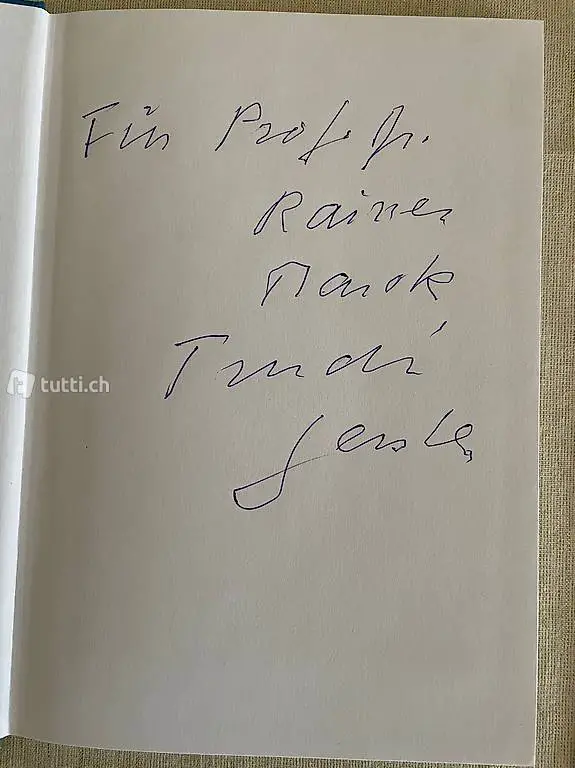 Für Prof. Dr.
Rainer
Marek
Trudi
Gerster
tutti.ch